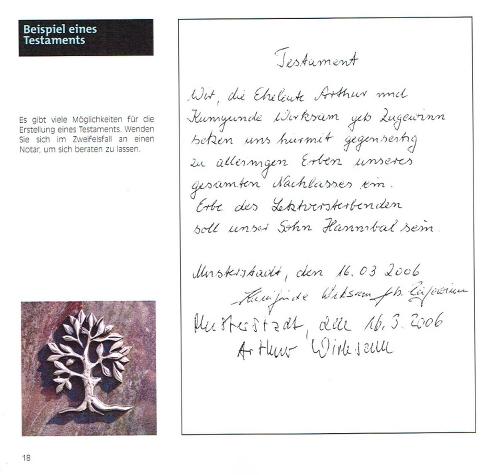 Beispiel eines
Testaments
Es gibt viele Möglichkeiten für die
Erstellung eines Testaments. Wenden
Sie sich im Zweifelsfall an einen
Notar, um sich beraten zu lassen.
Testament
Wir, die Eheleute Arthur und
Kunigunde Wirksam geb Zugewinn
setzen uns hiermit gegenseitig
zu alleinigen Erben unseres
gesamten Nachlasses ein.
Erbe des Letztversterbenden
soll unser Sohn Hannibal sein
Musterstadt, den 16.03 2006
Kunigunde Wirksam geb. Zugewinn
Musterstadt, den 16.3.2006
Arthur Wirksam
18